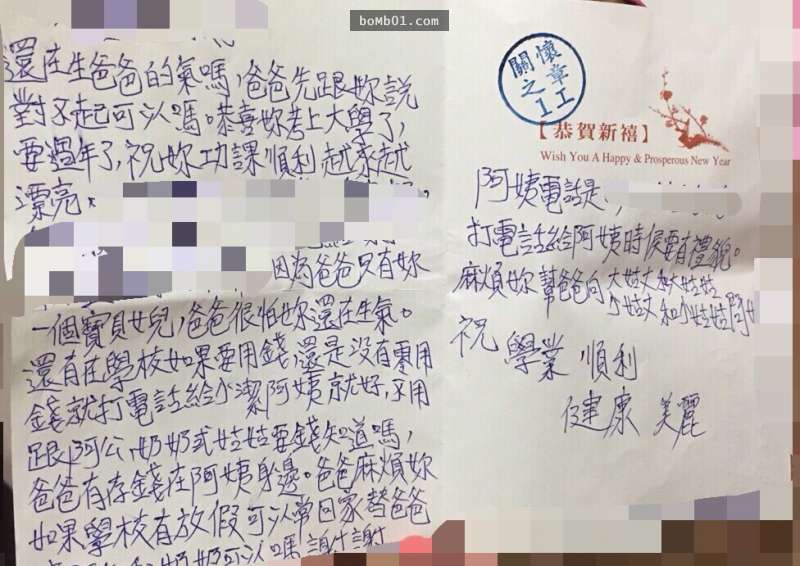 boMb01.com
還在生爸爸的氣嗎,爸爸先跟妳說
對不起可以嗎。恭喜妳考上大學了,
要過年了,祝妳功課順利越來越
漂亮。
因為爸爸只有妳
一個寶貝女兒,爸爸很怕妳還在生氣。
還有在學校如果要用錢,還是没有零用
錢就打電話給小潔阿姨就好,不用
跟阿公,奶奶或姑姑要錢知道嗎,
爸爸有存錢在阿姨身邊。爸爸麻煩妳
如果學校有放假可以常回家替爸爸
奶奶可以嗎謝謝
關懷
之章
1工
【恭賀新禧】
Wish You A Happy & Prosperous New Year
阿姨電話是
打電話給阿姨時候要有禮貌。
麻煩妳幫爸爸向大姑丈大姑姑
小姑丈和小姑姑問好
祝 學業 順利
健康 美麗